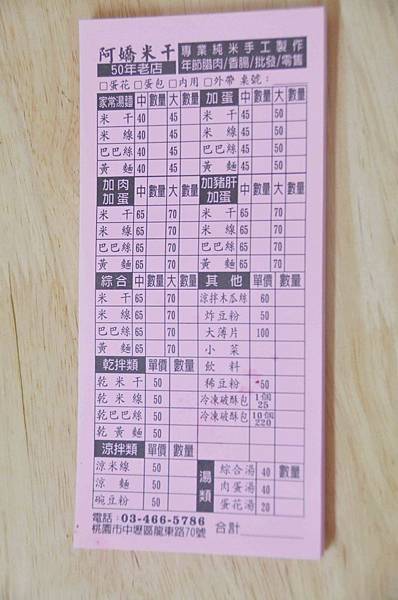 阿嬌米干 專業純米手工製作
50年老店 年節腊肉/香腸/批發/零售
□蛋花 □蛋包 □內用 □外帶 桌號：
家常湯麵 中 數量 大 數量 加蛋 中 數量 大 數量
米干 40 45 米干 45 50
米線 40 45 米線 45 50
巴巴絲 40 45 巴巴絲 45 50
黃麵 40 45 黃麵 45 50
加肉加蛋 中 數量 大 數量 加豬肝加蛋 中 數量 大 數量
米干 65 70 米干 65 70
米線 65 70 米線 65 70
巴巴絲 65 70 巴巴絲 65 70
黃麵 65 70 黃麵 65 70
綜合 中 數量 大 數量 其他 單價 數量
米干 65 70 涼拌木瓜絲 60
米線 65 70 炸豆粉 50
巴巴絲 65 70 大薄片 100
黃麵 65 70 小菜
乾拌類 單價 數量 飲料
乾米干 50 稀豆粉 50
乾米線 50 冷凍破酥包 1個 25
乾巴巴絲 50 冷凍破酥包 10個 220
乾黃麵 50
涼拌類 單價 數量
涼米線 50 湯類 綜合湯 40 數量
涼麵 50 肉蛋湯 40
碗豆粉 50 蛋花湯 20
電話：03-466-5786
桃園市中壢區龍東路70號 合計